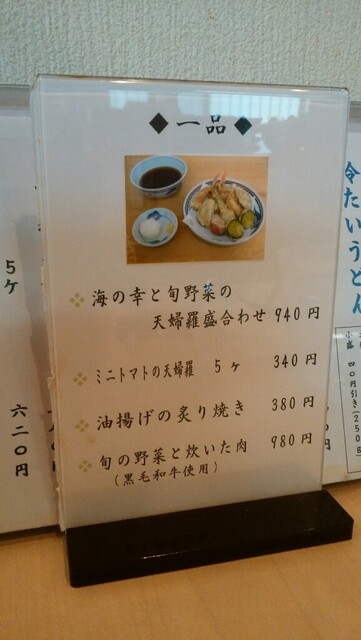 ◆一品◆
海の幸と旬野菜の
天婦羅盛合わせ 940円
ミニトマトの天婦羅 5ヶ 340円
油揚げの炙り焼き 380円
旬の野菜と炊いた肉 980円
(黒毛和牛使用)
5ヶ
六二〇円
冷たいうどん